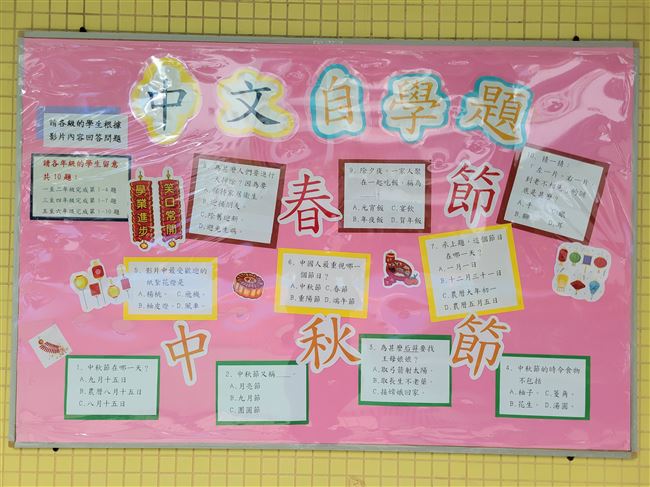 中文自學題
請各級的學生根據
影片內容回答問題
請各年級的學生留意
共10題:
一至二年級完成第1-4題
三至四年級完成第1-7題
五至六年級完成第1-10題
學業進步
笑口常開
春節
8. 為甚麼人們要進行
大掃除?因為要
A.保持家居衞生。
B.迎接明天。
C.除舊迎新。
D.避免患病。
9. 除夕夜,一家人聚
在一起吃飯,稱為
A.元宵飯
C.宴飲
B.年夜飯
D.賀年飯
10. 猜一猜:
左一片,右一片
到老不相見
A.手
D.耳
5. 影片中最受歡迎的
紙紮花燈是
A.楊桃。
C.飛機。
B.柚皮燈。
D.風車。
6. 中國人最重視哪一
個節日?
A.中秋節
C.春節
B.重陽節
D.端午節
7. 承上題,這個節日
在哪一天?
A.一月一日
B.十二月三十一日
C.農曆大年初一
D.農曆五月五日
中秋節
1. 中秋節在哪一天?
A.九月十五日
B.農曆八月十五日
C.八月十五日
2. 中秋節又稱____。
A.月亮節
B.九月節
C.團圓節
3. 為甚麼后羿要找
王母娘娘?
A.取弓箭射太陽。
B.取長生不老藥。
C.接嫦娥回家。
4. 中秋節的時令食物
不包括
A.柚子。
C.菱角。
B.花生。
D.湯圓。